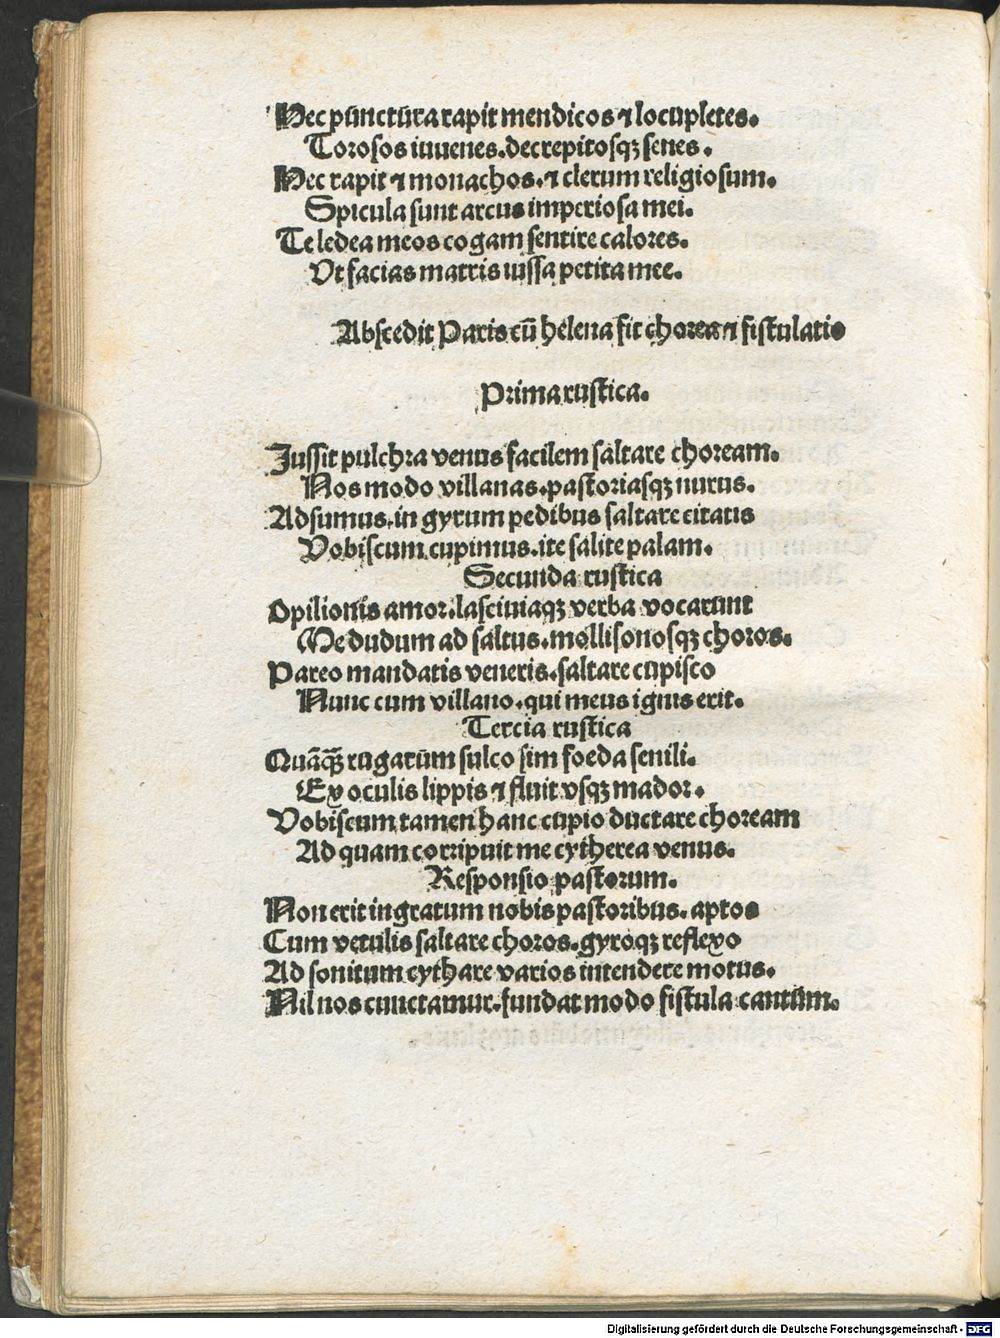 Hec pũnctũra rapit mendicos ⁊ locupletes.
Torosos iuuenes.decrepitosqꝫ senes.
Hec rapit ⁊ monachos.⁊ clerum religiosum.
Spicula sunt arcus imperiosa mei.
Te ledea meos cogam sentire calores.
Vt facias matris iussa petita mee.
Abscedit Paris cũ helena fit chorea ⁊ fistulatio
Prima rustica.
Jussit pulchra venus facilem saltare choream.
Nos modo villanas.pastoriasqꝫ nurus.
Adsumus.in gyrum pedibus saltare citatis
Vobiscum cupimus.ite salite palam.
Secunda rustica
Opilionis amor.lasciuiaqꝫ verba vocarunt
Me dudum ad saltus.mollisonosqꝫ choros.
Pareo mandatis veneris.saltare cupisco
Nunc cum villano.qui meus ignis erit.
Tercia rustica
Quãqꝫ rugarum sulco sim foeda senili.
Ex oculis lippis ⁊ fluit vsqꝫ mador.
Vobiscum tamen hanc cupio ductare choream
Ad quam corripuit me cytherea venus.
Responsio pastorum.
Non erit ingratum nobis pastoribus.aptos
Cum vetulis saltare choros.gyroqꝫ reflexo
Ad sonitum cythare varios intendere motus.
Nil nos cunctamur.fundat modo fistula cantũm.
Digitalisierung gefördert durch die Deutsche Forschungsgemeinschaft - DFG